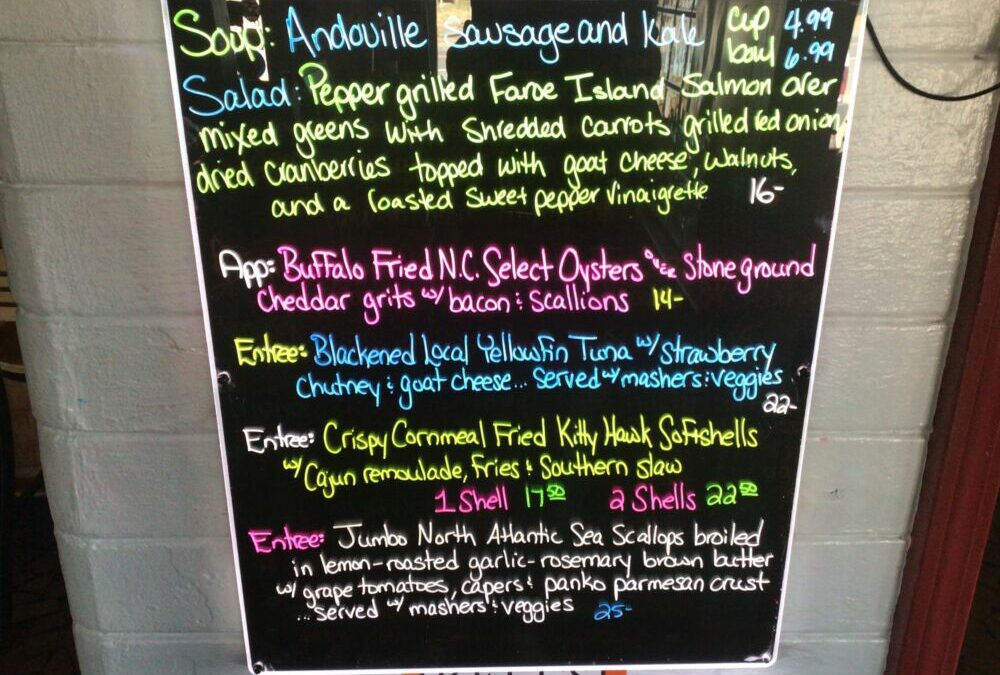 Soup: Andouille Sausage and Kale cup 4.99
bowl 6.99
Salad: Pepper grilled Faroe Island Salmon over
mixed greens with shredded carrots grilled red onion
dried cranberries topped with goat cheese, walnuts,
and a roasted sweet pepper vinaigrette 16-
App: Buffalo Fried N.C. Select Oysters over Stone ground
Cheddar grits w/ bacon & scallions 14-
Entree: Blackened Local Yellowfin Tuna w/ strawberry
Chutney & goat cheese... Served w/ mashers & veggies
22-
Entree: Crispy Cornmeal Fried Kitty Hawk Softshells
w/ Cajun remoulade, Fries & Southern slaw
1 Shell 17.50 2 Shells 22.50
Entree: Jumbo North Atlantic Sea Scallops broiled
in lemon-roasted garlic-rosemary brown butter
w/ grape tomatoes, capers & panko parmesan crust
...served w/ mashers & veggies 25-